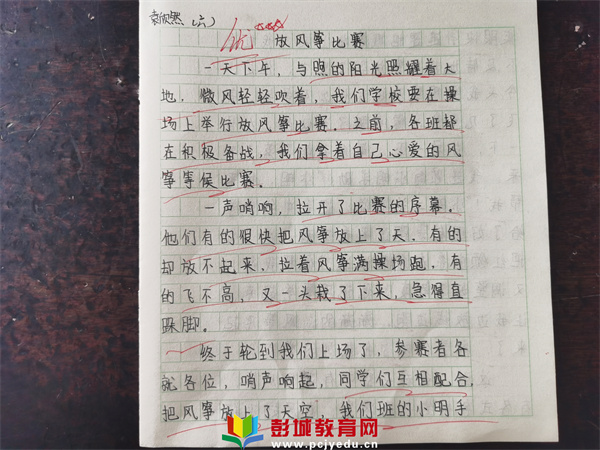 袁欣然（六）
优 放风筝比赛
一天下午，与煦的阳光照耀着大
地，微风轻轻吹着，我们学校要在操
场上举行放风筝比赛。之前，各班都
在积极备战，我们拿着自己心爱的风
筝等候比赛。
一声哨响，拉开了比赛的序幕。
他们有的很快把风筝放上了天。有的
却放不起来，拉着风筝满操场跑，有
的飞不高，又一头栽了下来，急得直
跺脚。
终于轮到我们上场了，参赛者各
就各位，哨声响起，同学们互相配合，
把风筝放上了天空，我们班的小明手
彭城教育网
www.pcjyedu.cn